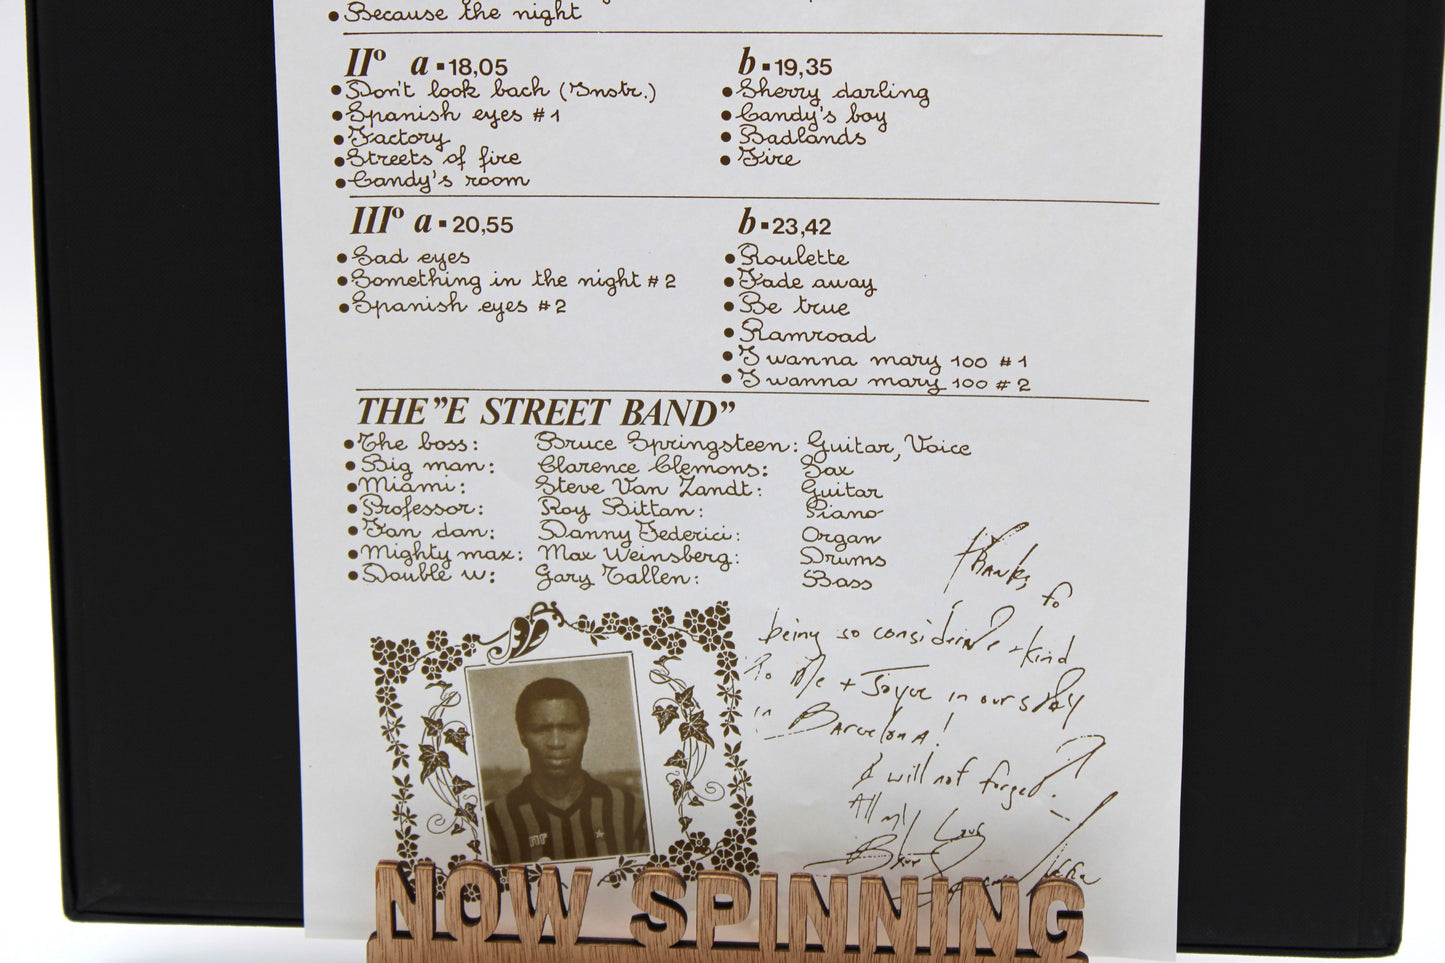 Because the night
IIº a ▪ 18,05
Don't look bach (Instr.)
Spanish eyes #1
Factory
Streets of fire
Candy's room
b ▪ 19,35
Sherry darling
Candy's boy
Badlands
Fire
IIIº a ▪ 20,55
Sad eyes
Something in the night #2
Spanish eyes #2
b ▪ 23,42
Roulette
Fade away
Be true
Ramroad
I wanna mary 100 #1
I wanna mary 100 #2
THE "E STREET BAND"
The boss: Bruce Springsteen: Guitar, Voice
Big man: Clarence Clemons: Sax
Miami: Steve Van Zandt: Guitar
Professor: Roy Bittan: Piano
Fan dan: Danny Federici: Organ
Mighty max: Max Weinsberg: Drums
Double w: Gary Tallen: Bass
Thanks fo
being so considerate + kind
To Me + Joyce in our stay
in Barcelona!
I will not forget.
All my Love
NR
NOW SPINNING